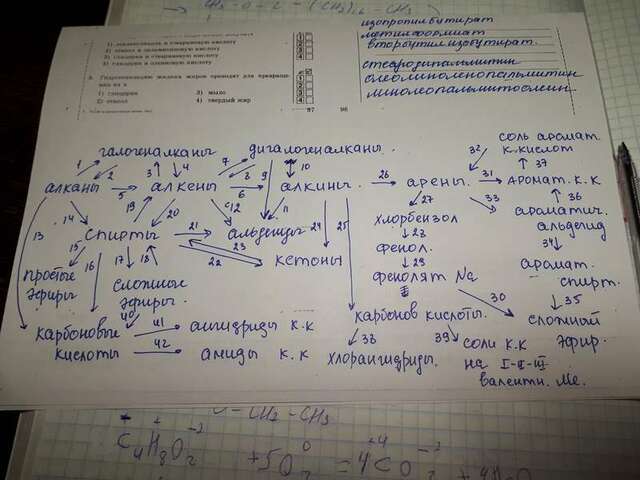 CH₃ - O - C - (CH₂)₁₆ - CH₃
изопропилбутират
метилформиат
вторбутилизобутират.
стеародипальмитин
олеолиноленопальмитин
линолеопальмитоолеин
3) глицерин и стеариновую кислоту
4) глицерин и олеиновую кислоту
3. Гидрогенизацию жидких жиров проводят для превращения их в
1) глицерин 3) мыло
2) этанол 4) твердый жир
97 98
галогеналканы дигалогеналканы
соль аромат. к.кислот
1 2 3 4 7 8 9 10 32 37
алканы 5 алкены 6 алкины 26 арены 31 аромат. к.к
13 14 19 20 с12 11 24 25 27 33 36
спирты 21 альдегиды
22 23 кетоны
хлорбензол
ароматич. альдегид
28 34
фенол.
аромат. спирт.
29
фенолят Na
30 35
15 16 17 18
простые эфиры
сложные эфиры.
сложный эфир.
40
карбоновые кислоты
41 ангидриды к.к
42 амиды к.к
карбонов кислоты.
38 39
хлорангидриды.
соли к.к
на I-II-III
валентн. Ме.
O - CH₂ - CH₃
C₄H₈O₂ + 5O₂ = 4CO₂